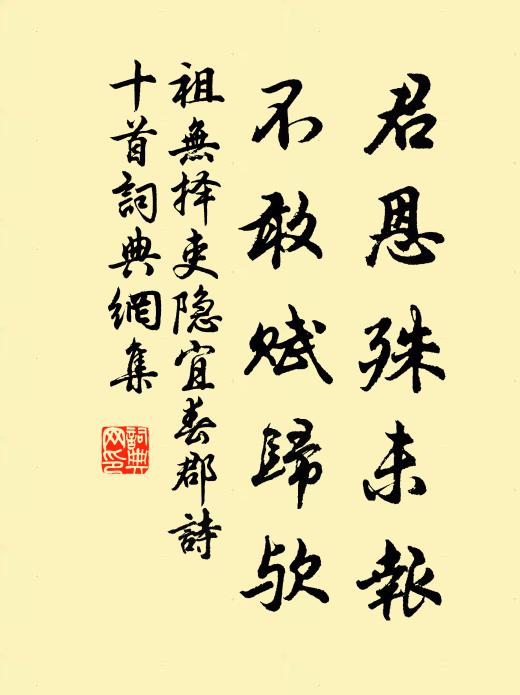 君恩殊未報
不敢赋歸欤
祖無择吏隐宜春郡詩
十首詞典網集
詞典
网印